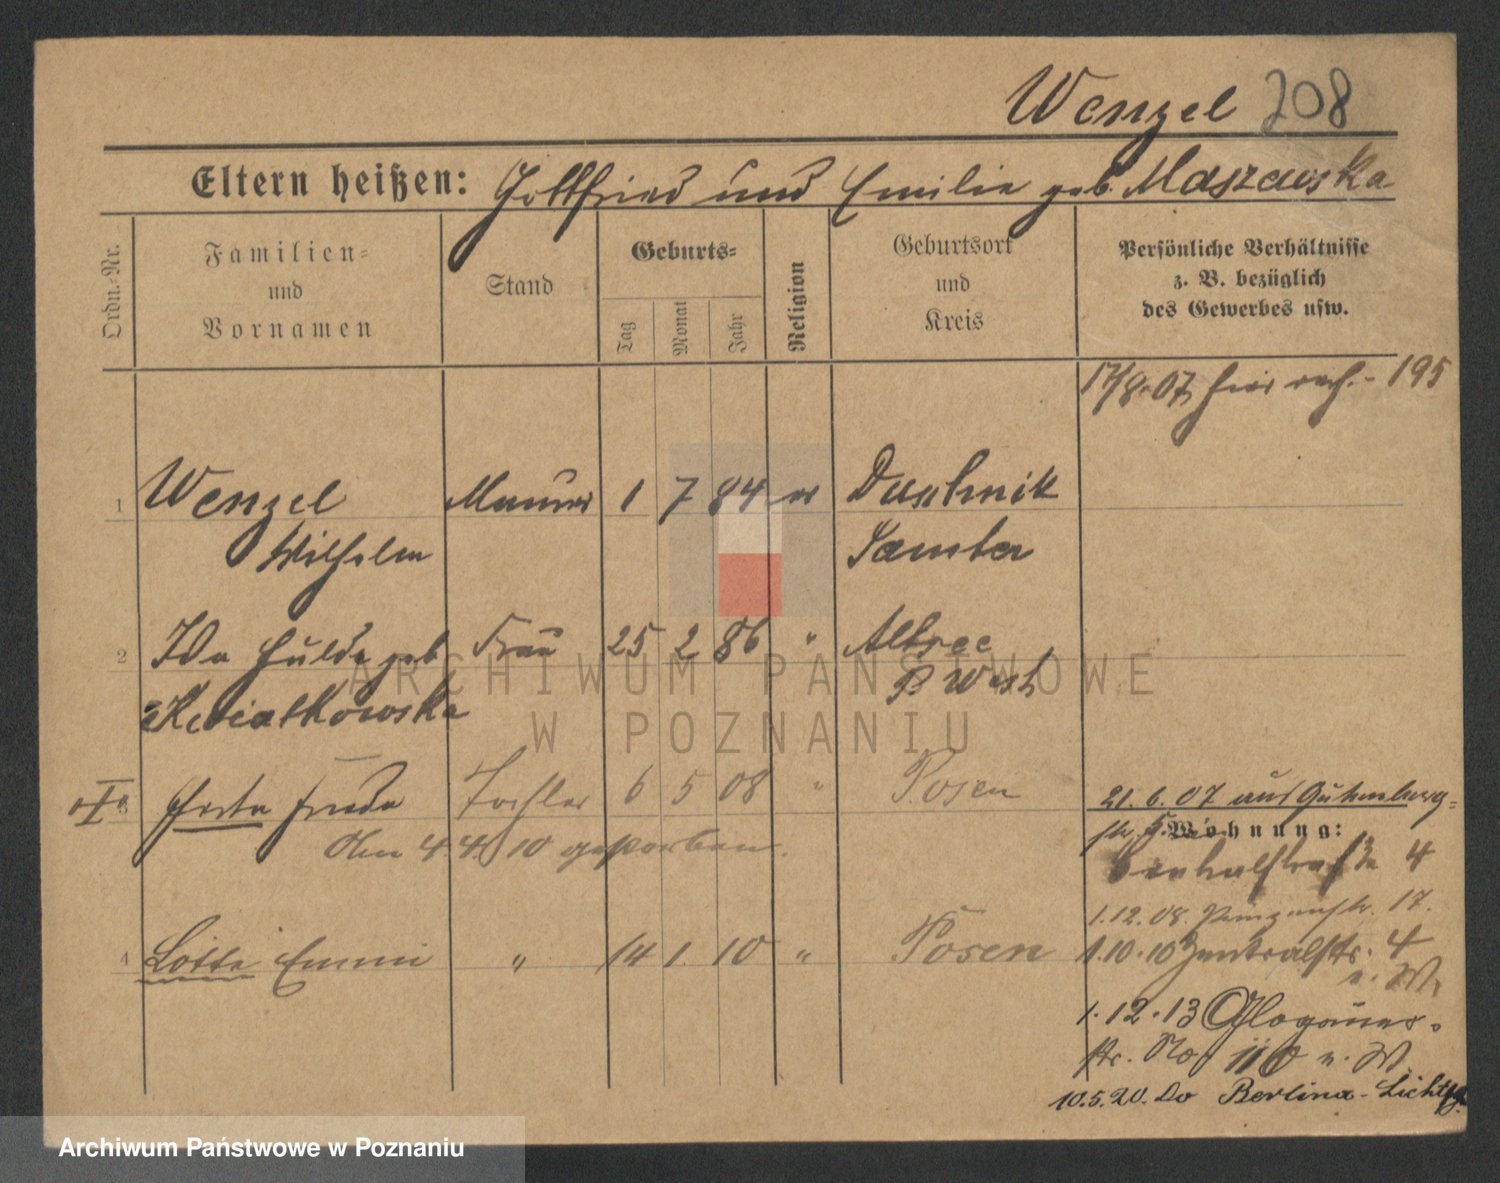 Wenzel 208
Eltern heißen: Gottfried und Emilie geb. Maszewska
Ordn.-Nr.
Familien-
und
Vornamen
Stand
Geburts-
Tag
Monat
Jahr
Religion
Geburtsort
und
Kreis
Persönliche Verhältnisse
z. B. bezüglich
des Gewerbes usw.
17/8.07 hier - 195
1 Wenzel Maurer 1 7 84 ev Duschnik
Wilhelm Samter
2 Ida Hulda geb Frau 25 2 86 " Altsee
Kwiatkowska P West
3 Herta Frieda Tochter 6 5 08 " Posen
Am 4.4.10 gestorben.
21.6.07 aus Gutenberg-
str. Wohnung:
Centralstraße 4
1.12.08. 17.
4 Lotte Emmi " 14 1. 10 " Posen
1.10.10 Zentralstr. 4
n. W.
1.12.13 Glogauer-
str. No 110 n. W.
10.5.20. Do Berlina-Lichtfg.
ARCHIWUM PAŃSTWOWE
W POZNANIU
Archiwum Państwowe w Poznaniu